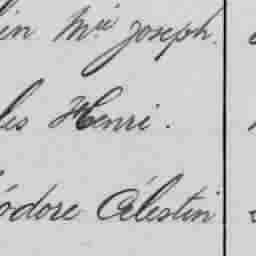 in Mie Joseph.
les Henri.
éodore Célestin